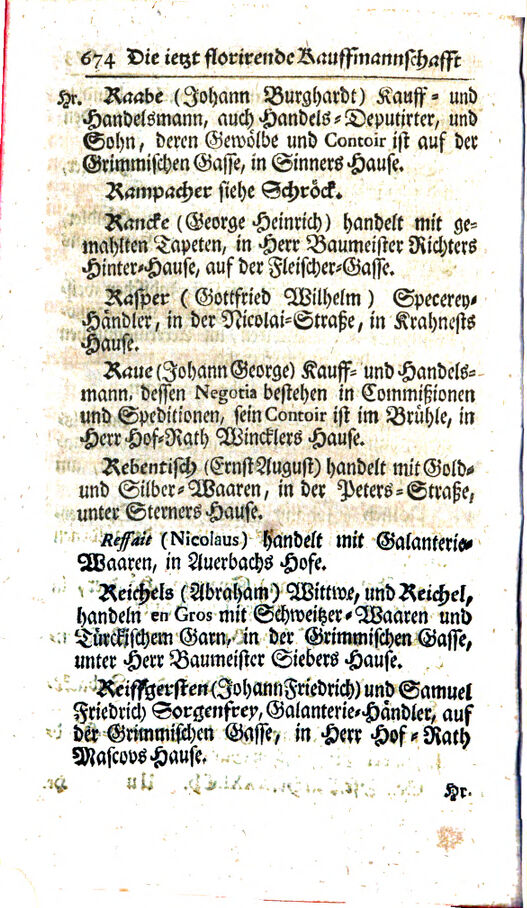 674 Die ietzt florirende Kauffmannschafft
Hr. Raabe (Johann Burghardt) Kauff- und
Handelsmann, auch Handels-Deputirter, und
Sohn, deren Gewölbe und Contoir ist auf der
Grimmischen Gasse, in Sinners Hause.
Rampacher siehe Schröck.
Rancke (George Heinrich) handelt mit ge-
mahlten Tapeten, in Herr Baumeister Richters
Hinter-Hause, auf der Fleischer-Gasse.
Rasper (Gottfried Wilhelm) Specerey-
Händler, in der Nicolai-Straße, in Krahnests
Hause.
Raue (Johann George) Kauff- und Handels-
mann, dessen Negotia bestehen in Commißionen
und Speditionen, sein Contoir ist im Brühle, in
Herr Hof-Rath Wincklers Hause.
Rebentisch (Ernst August) handelt mit Gold-
und Silber-Waaren, in der Peters-Straße,
unter Sterners Hause.
Reffait (Nicolaus) handelt mit Galanterie-
Waaren, in Auerbachs Hofe.
Reichels (Abraham) Wittwe, und Reichel,
handeln en Gros mit Schweitzer-Waaren und
Türckischem Garn, in der Grimmischen Gasse,
unter Herr Baumeister Siebers Hause.
Reiffgersten (Johann Friedrich) und Samuel
Friedrich Sorgenfrey, Galanterie-Händler, auf
der Grimmischen Gasse, in Herr Hof-Rath
Mascovs Hause.
Hr.